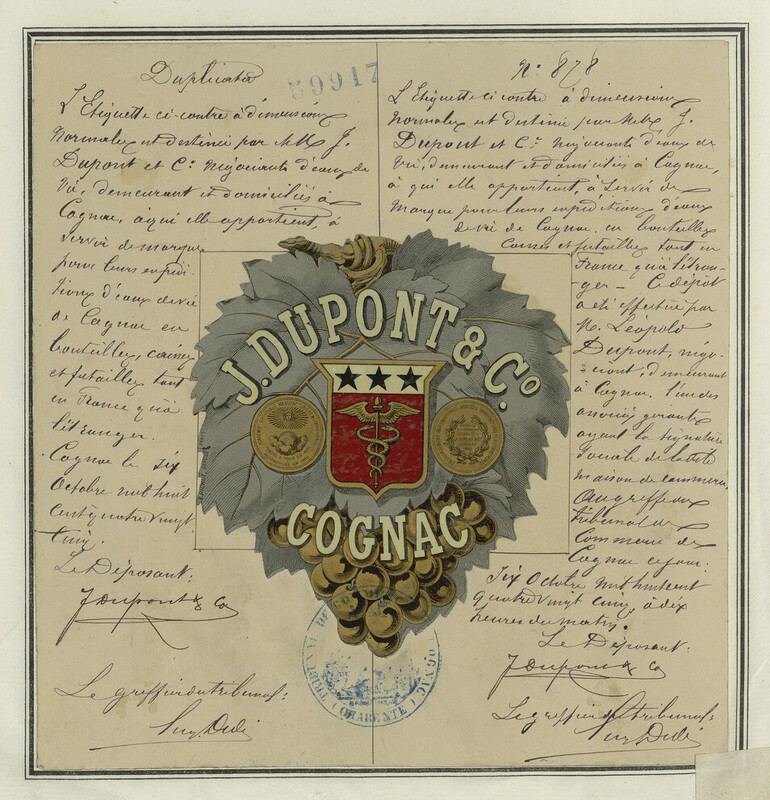 Duplicata
59917
L'Etiquette ci-contre à dimensions
Normales est destinée par MM. J.
Dupont et Cie Négociants d'eaux de
Vie, demeurant et domiciliés à
Cognac, à qui elle appartient, à
servir de marque
pour leurs expédi-
tions d'eaux de vie
de Cognac en
bouteilles, caisses
et futailles tant
en France qu'à
l'étranger.
Cognac le six
Octobre mil huit
cent quatre vingt
cinq.
Le Déposant:
J Dupont & Co
Le greffier du tribunal:
No 878
L'Etiquette ci contre à dimensions
Normales est destinée par MM. J.
Dupont et Cie Négociants d'eaux de
Vie, demeurant et domiciliés à Cognac,
à qui elle appartient, à servir de
Marque pour leurs expéditions d'eaux
de vie de Cognac en bouteilles
caisses et futailles tant en
France qu'à l'étran-
ger - Ce dépôt
a été effectué par
M. Léopold
Dupont, négo-
ciant, demeurant
à Cognac, l'un des
associés gérants
ayant la signature
sociale de la dite
maison de commerce
au greffe du
tribunal de
Commerce de
Cognac ce jour.
Six Octobre mil huit cent
quatre vingt cinq, à dix
heures du matin.
Le Déposant:
J Dupont & Co
Le greffier du tribunal:
J. DUPONT & Co.
COGNAC
TRIBUNAL DE COGNAC
(CHARENTE)